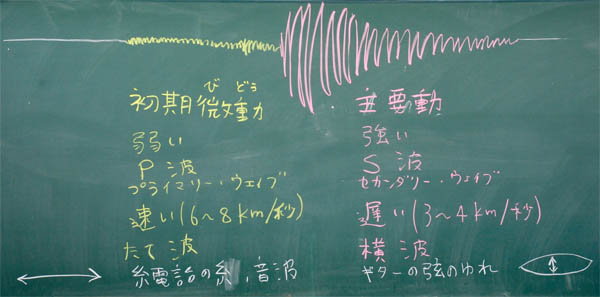 びどう
初期微動
弱い
P 波
プライマリー・ウェイブ
速い(6〜8km/秒)
たて波
糸電話の糸、音波
主要動
強い
S 波
セカンダリー・ウェイブ
遅い(3〜4km/秒)
横波
ギターの弦のゆれ